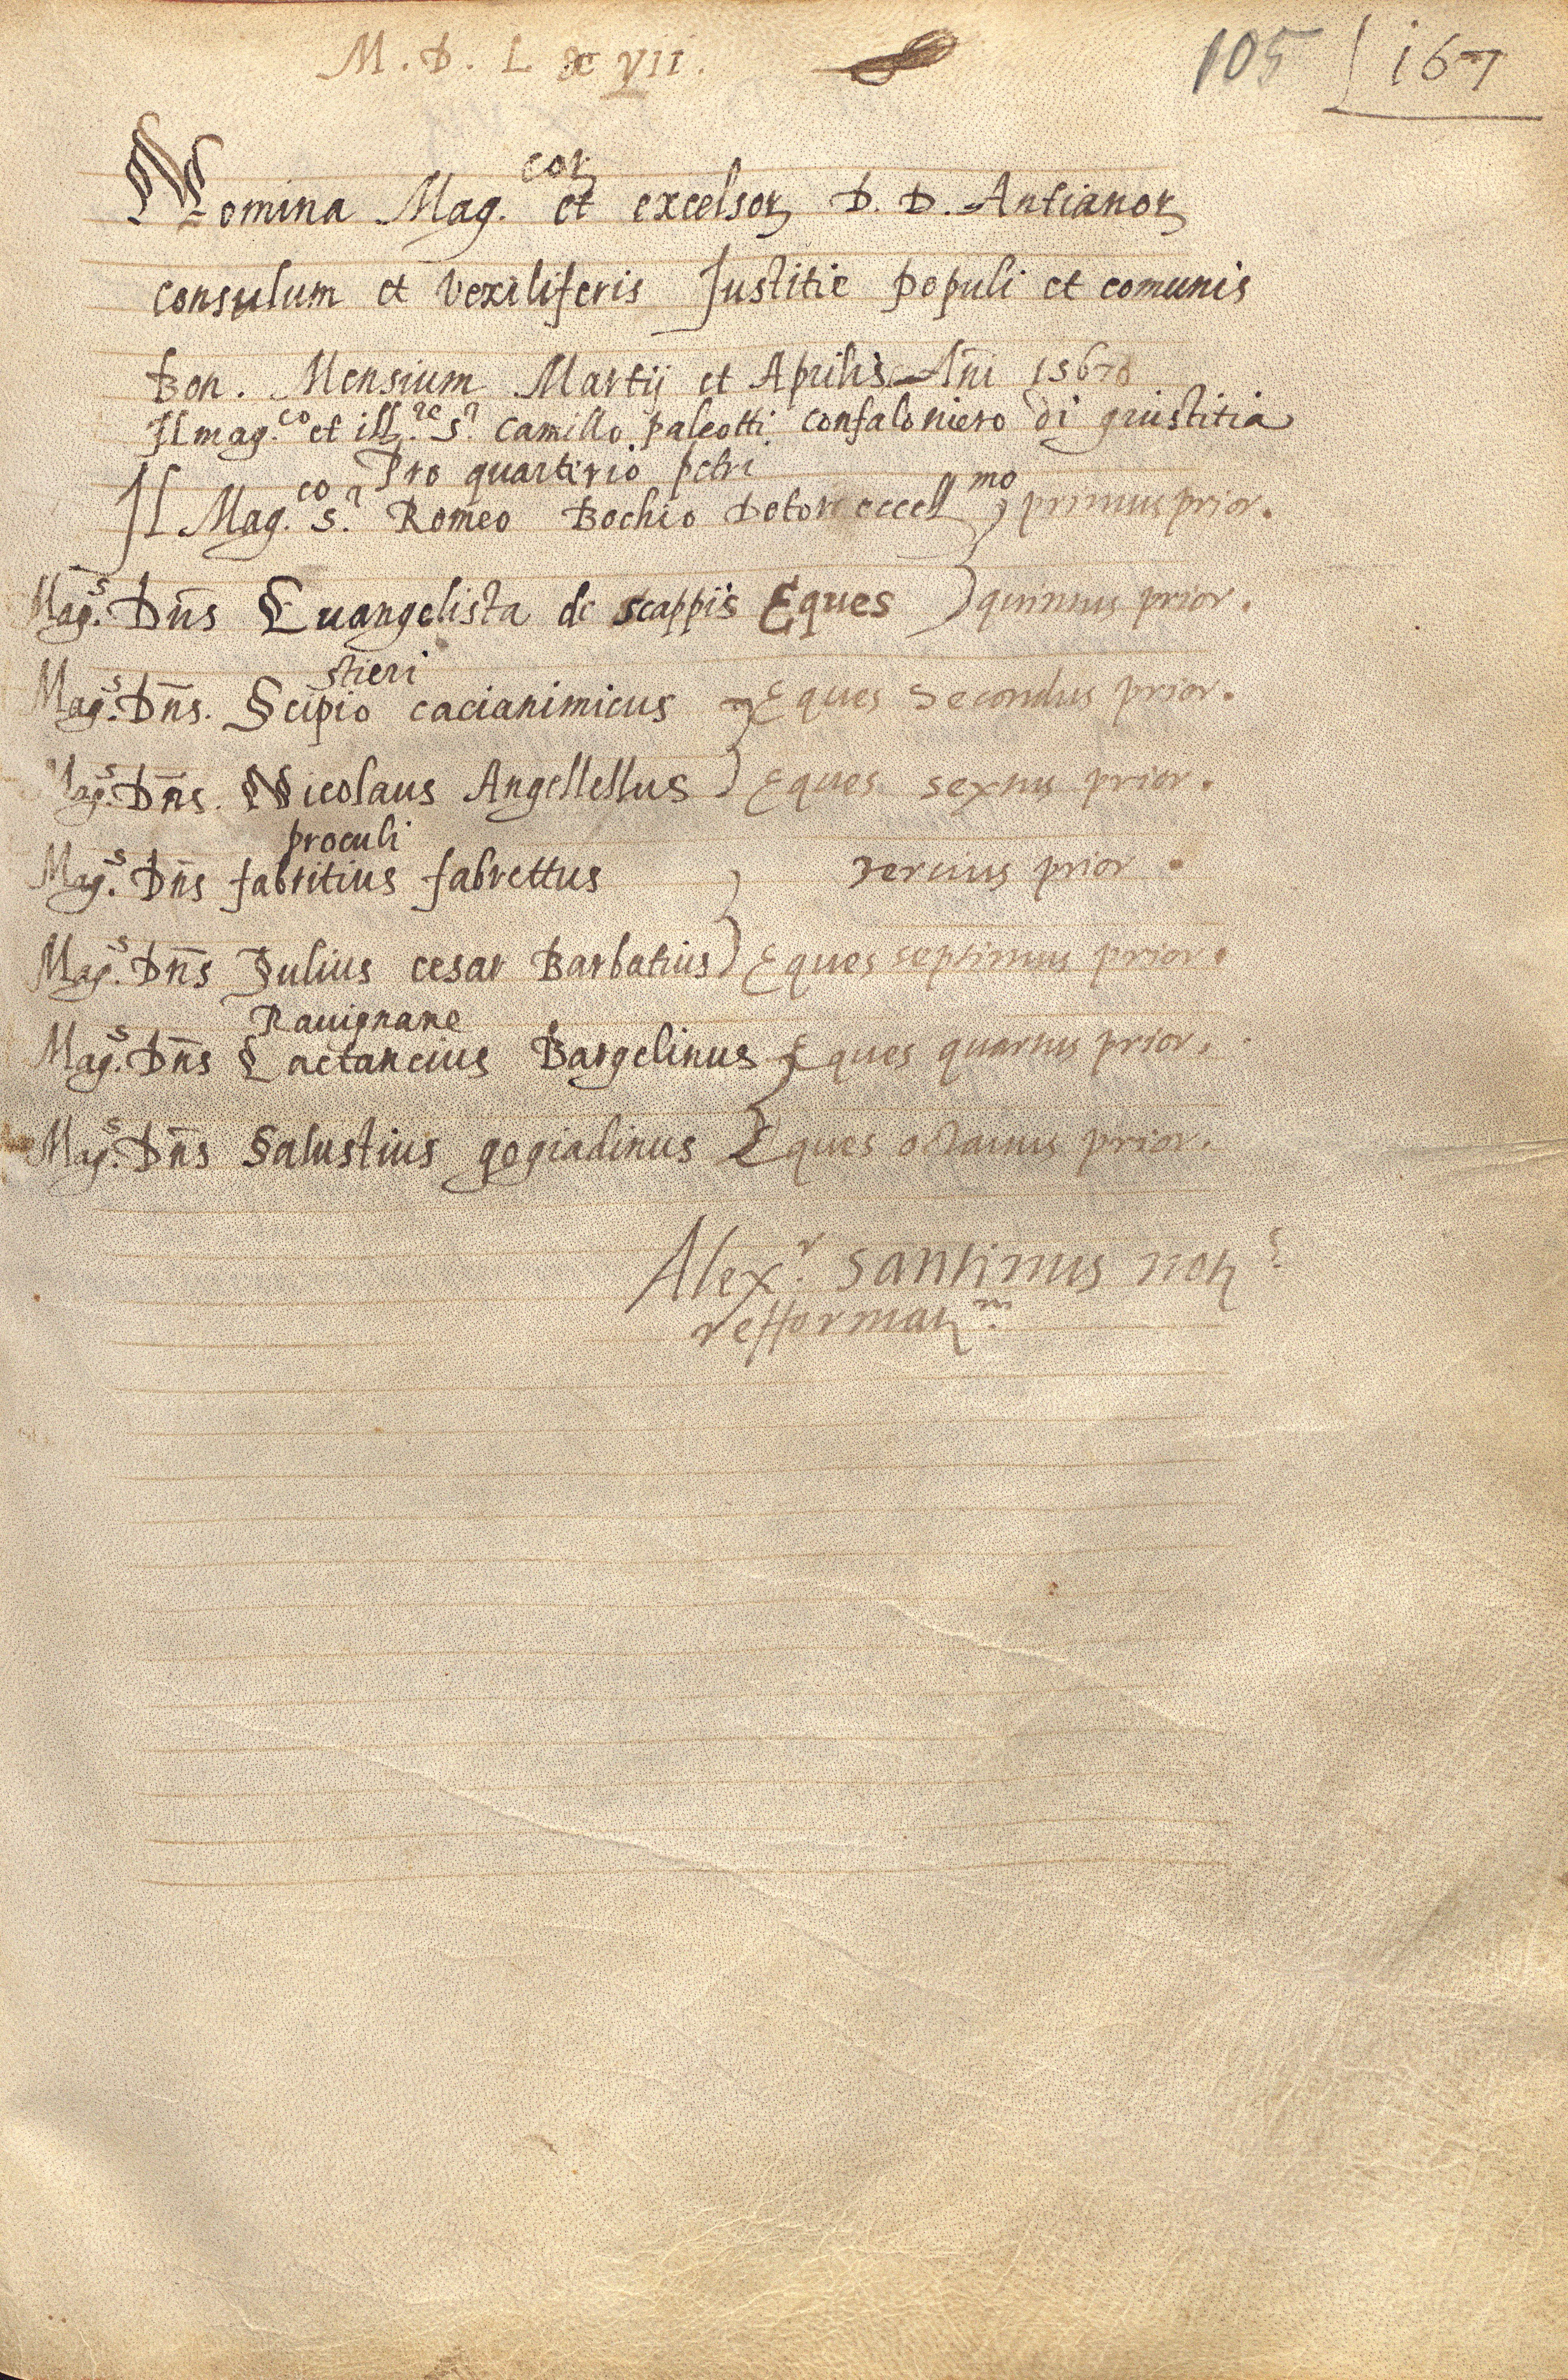 M. D. L X VII. 105 167
Nomina Mag.cor et excelsor D. D. Antianor
consulum et vexiliferis Justitie populi et comunis
Bon. Mensium Martij et Aprilis Añi 1567
Il mag.co et ill.re s.r Camillo paleotti confaloniero di giustitia
Pro quarterio petri
Il Mag.co s.r Romeo Bochio Dotor eccell.mo primus prior.
Mag.s Dñs Euangelista de scappis Eques quintus prior.
stieri
Mag.s Dñs. Scipio cacianimicus Eques secondus prior.
Mag.s Dñs. Nicolaus Angellellus Eques sextus prior.
proculi
Mag.s Dñs fabritius fabrettus tertius prior
Mag.s Dñs Julius cesar Barbatius Eques septimus prior.
Rauignane
Mag.s Dñs Lactancius Bargelinus Eques quartus prior.
Mag.s Dñs Salustius gogiadinus Eques octauus prior.
Alex.r Santinus not.s
refformat.m